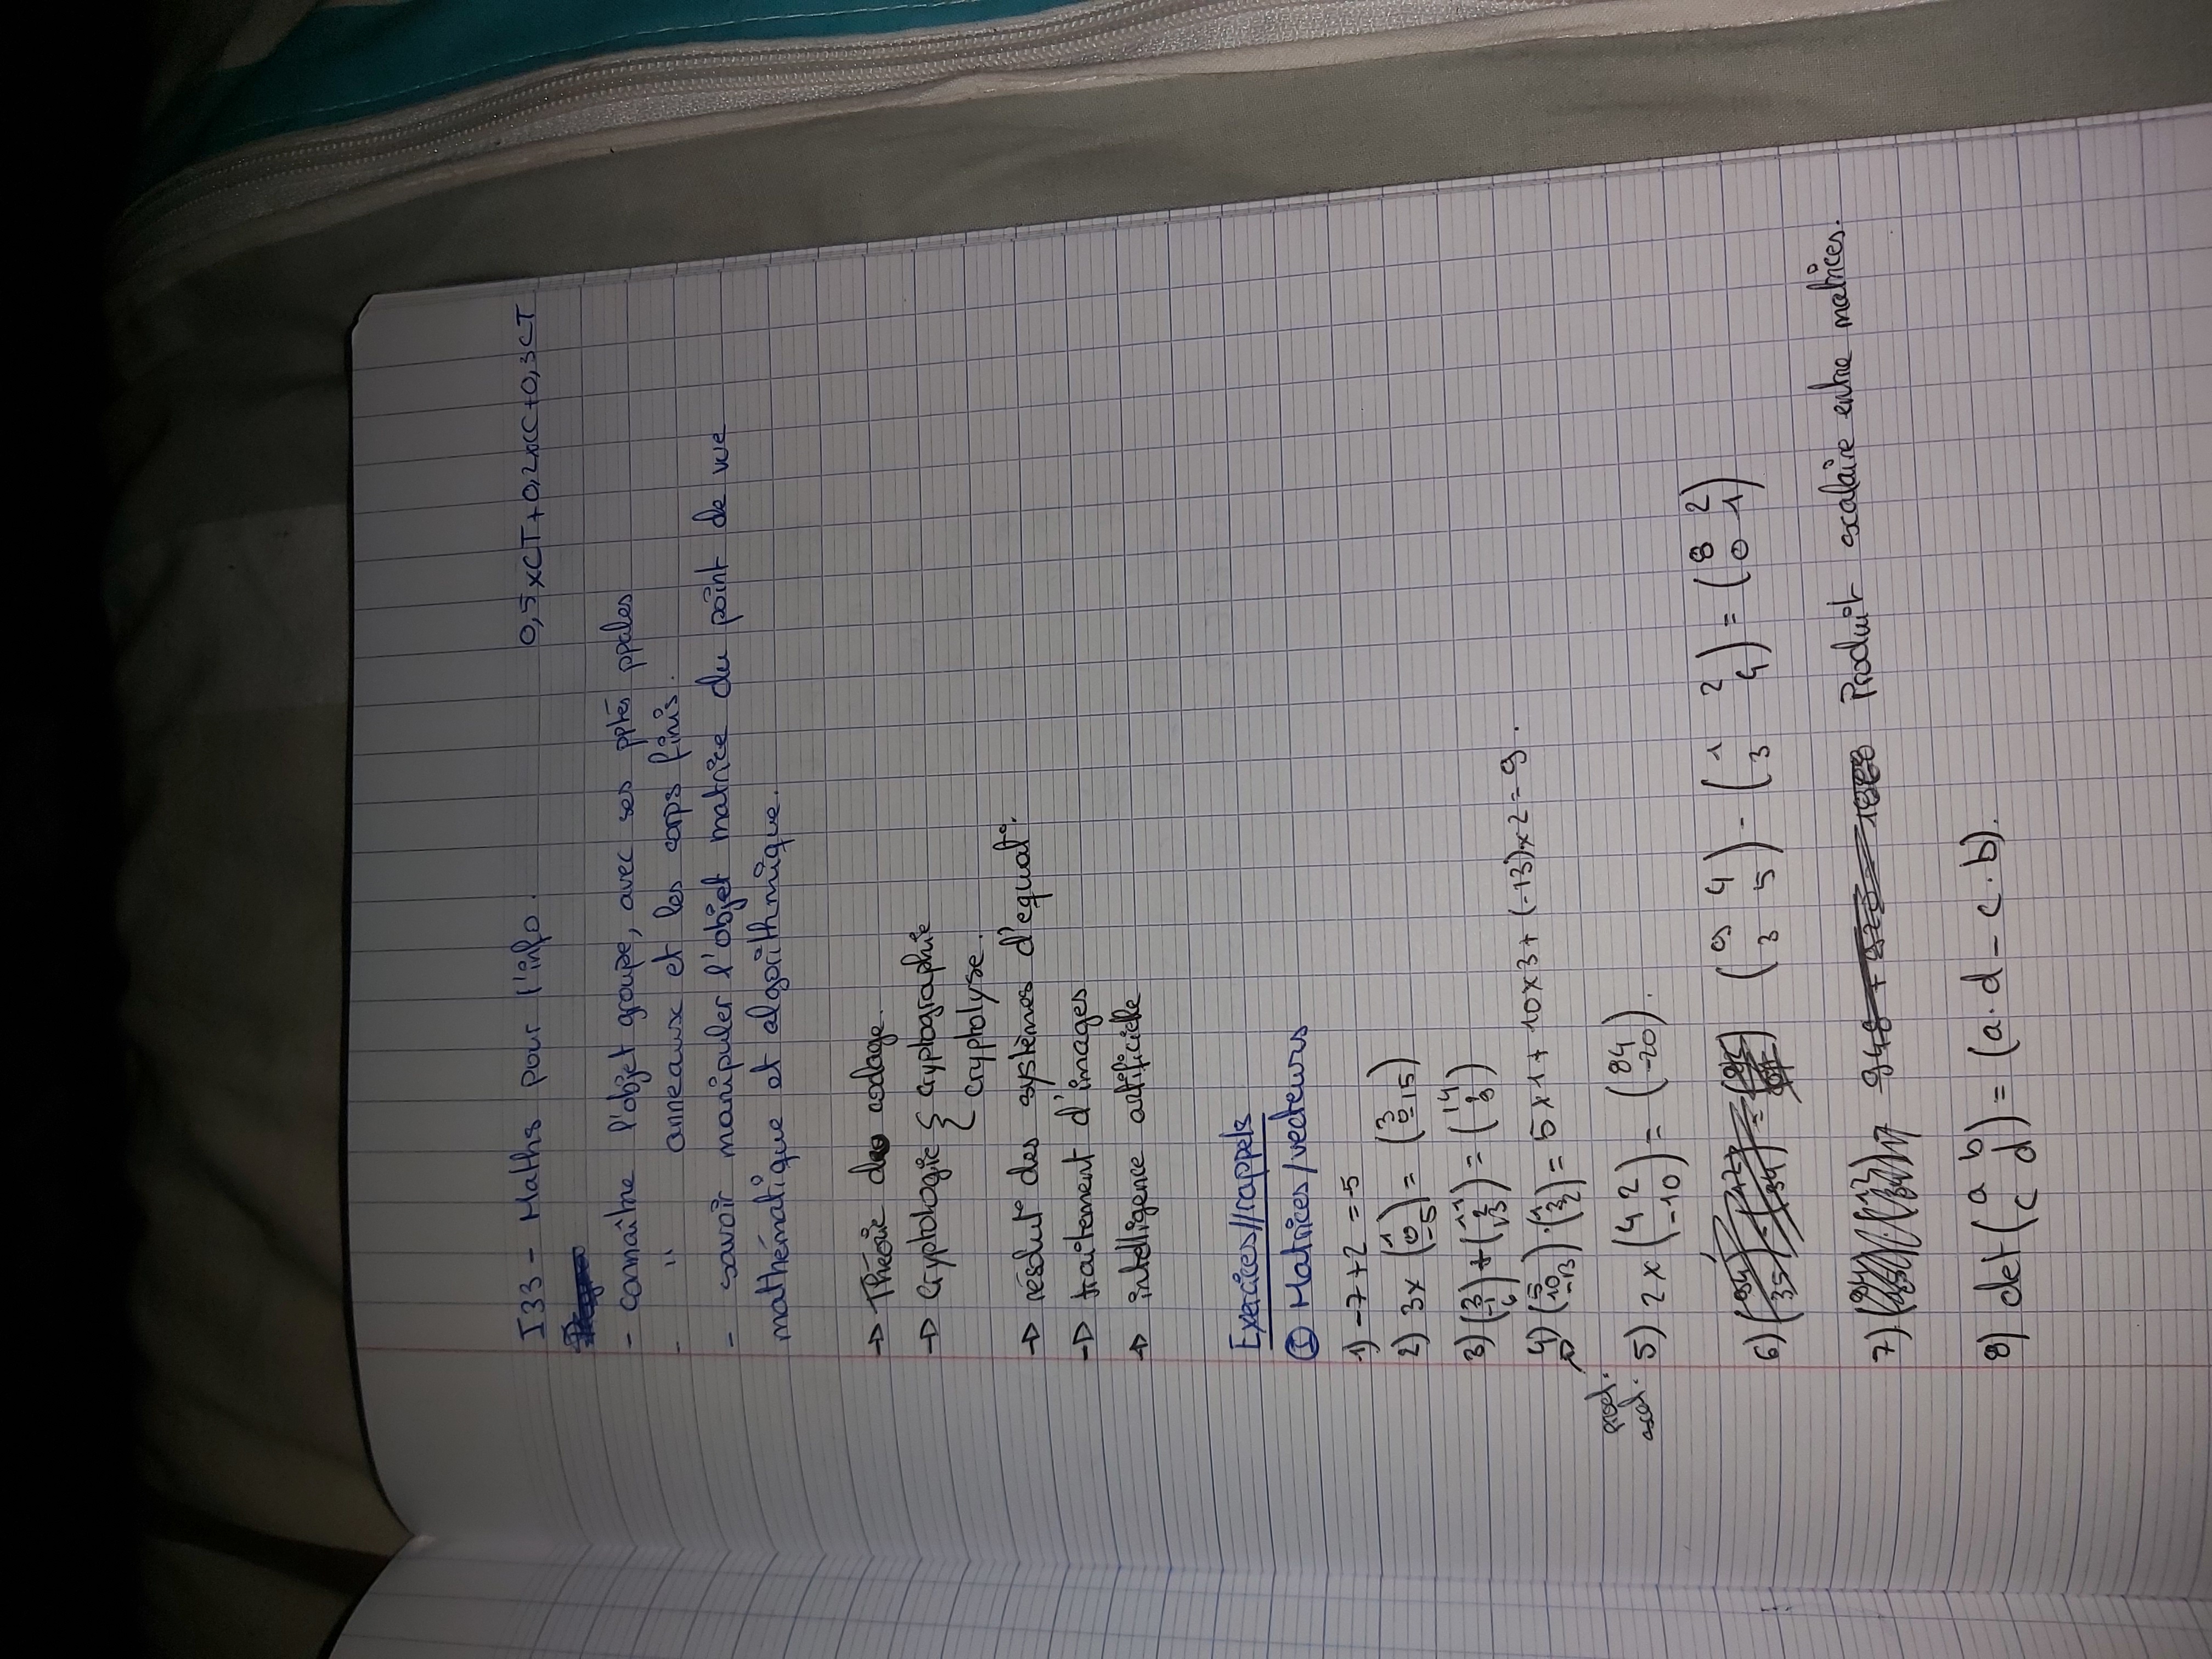 I33 - Maths pour l'info. 0,5xCT+0,2xCC+0,3CT
- connaître l'objet groupe, avec ses pptés ppales
- " anneaux et les corps finis.
- savoir manipuler l'objet matrice du point de vue
mathématique et algorithmique.
→ Théorie des codage.
→ Cryptologie { cryptographie
cryptolyse.
→ résolut° des systèmes d'equat°.
→ traitement d'images
→ intelligence artificielle
Exercices//rappels
① Matrices/vecteurs
1) -7+2 = -5
2) 3x (1 0 -5) = (3 0 -15)
3) (3 -1 6) + (11 2 √3) = (14
4) (5 10 -13) · (1 3 2) = 5x1 + 10x3 + (-13)x2 = 9.
prod.
scal.
5) 2 x (4 2
-10) = (84
-20).
6) (9 4
3 5) - (1 2
3 4) = (8 2
0 1)
7) Produit scalaire entre matrices.
8) det (a b
c d) = (a.d - c.b).